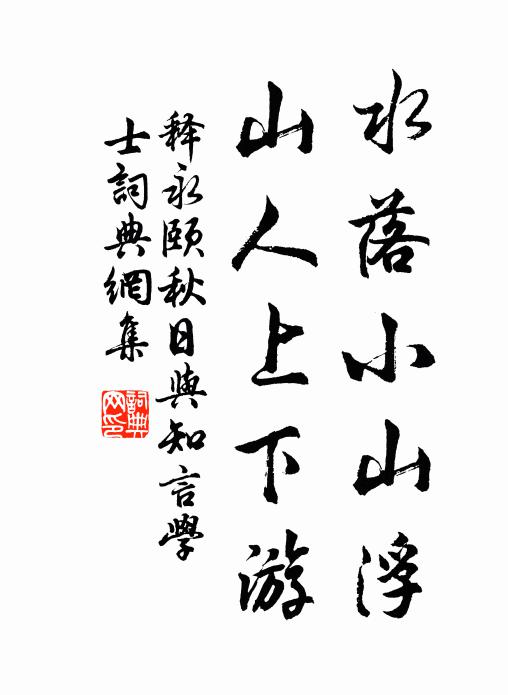 水落小山浮
山人上下游
释永颐秋日與知言學
士詞典網集
詞典网印